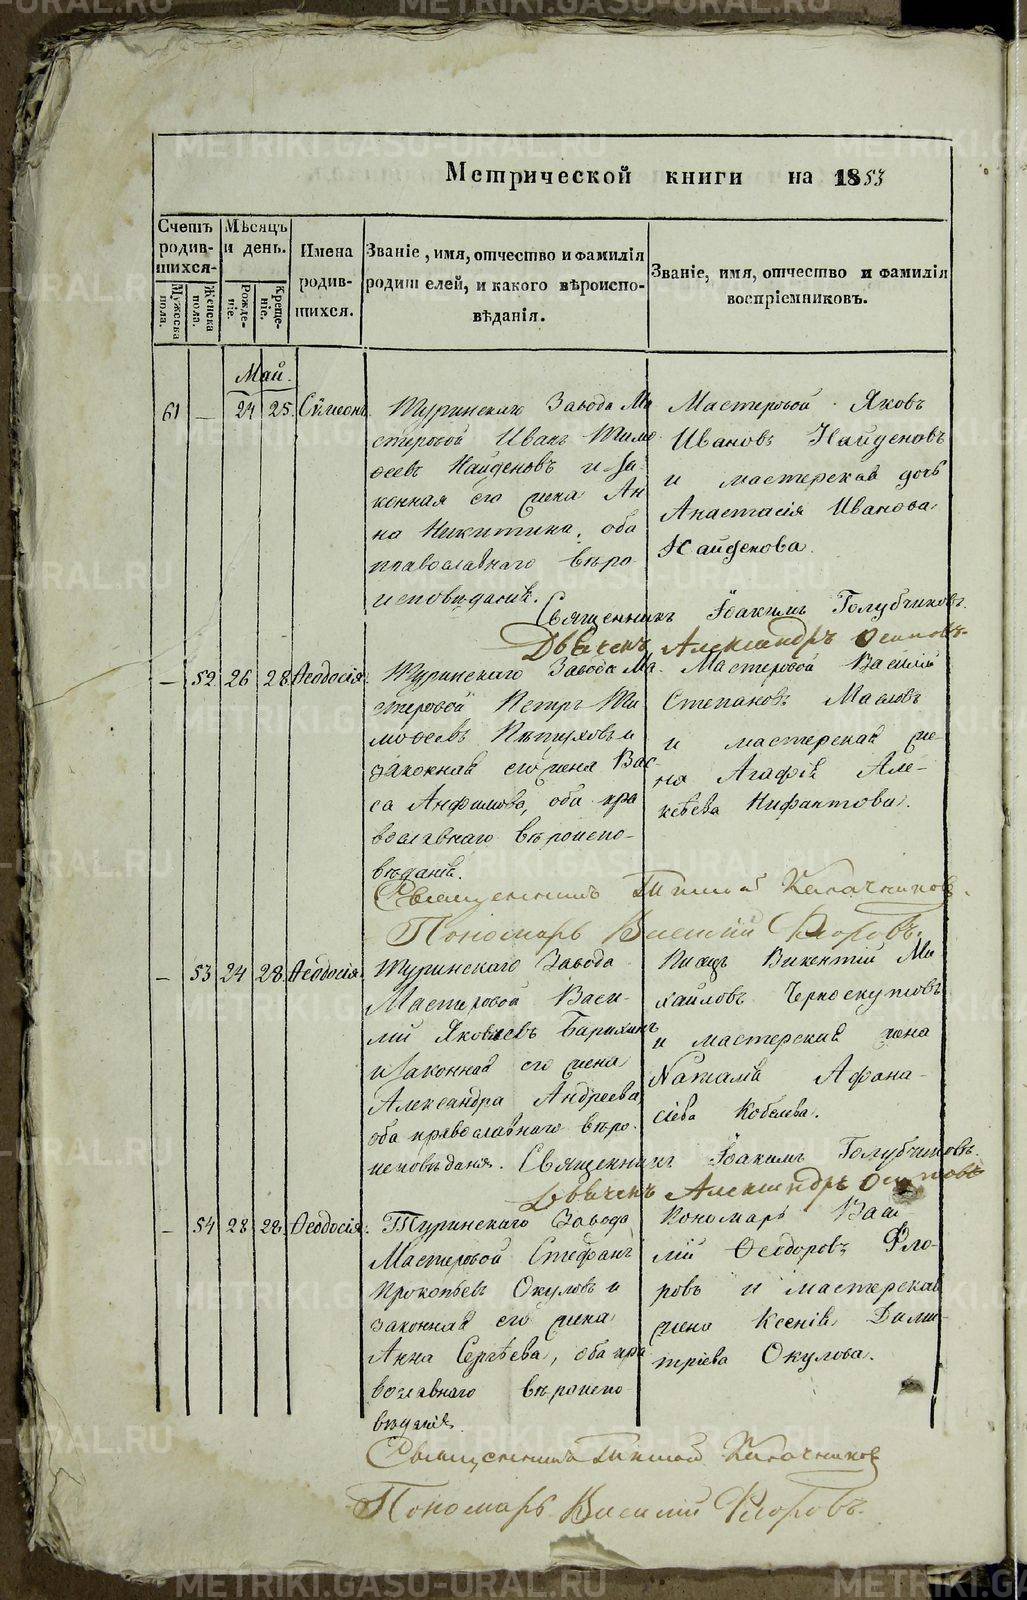 Метрической книги на 1853
Счетъ родившихся.
Мѣсяцъ и день.
Имена родившихся.
Званіе, имя, отчество и фамилія родителей, и какого вѣроисповѣданія.
Званіе, имя, отчество и фамилія воспріемниковъ.
Мужеска пола.
Женска пола.
Рожденіе.
Крещеніе.
Май.
61 — 24 25 Сѵмеонъ.
Туринскаго Завода Ма
стеровой Иванъ Тимо
ѳеевъ Найденовъ и за
конная его жена Ан
на Никитина, оба
православнаго вѣро
исповѣданія.
Мастеровой Яковъ
Ивановъ Найденовъ
и мастерская дочь
Анастасія Иванова
Найденова.
Священникъ Іоакимъ Голубчиковъ.
Дьячекъ Александръ Осиповъ.
— 52 26 28 Ѳеодосія.
Туринскаго Завода Ма
стеровой Петръ Ти
моѳеевъ Пѣтуховъ и
законная его жена Вас
са Анфимова, оба пра
вославнаго вѣроиспо-
вѣданія.
Мастеровой Василій
Степановъ Масловъ
и мастерская же-
на Агафія Але-
ксѣева Нифантова.
Священникъ Калачниковъ.
Пономарь Василій Флоровъ.
— 53 24 28 Ѳеодосія.
Туринскаго Завода
Мастеровой Васи-
лій Яковлевъ
и законная его жена
Александра Андреева
оба православнаго вѣро-
исповѣданія.
Писецъ Викентій Ми
хайловъ Черноскутовъ
и мастерская жена
Наталія Афана-
сіева Кобелева.
Священникъ Іоакимъ Голубчиковъ.
Дьячекъ Александръ Осиповъ
— 54 28 28 Ѳеодосія.
Туринскаго Завода
Мастеровой Стефанъ
Прокопьевъ Окуловъ и
законная его жена
Анна Сергѣева, оба пра
вославнаго вѣроиспо
вѣданія.
Пономарь Васи-
лій Ѳеодоровъ Фло-
ровъ и мастерская
жена Ксенія Дими-
тріева Окулова.
Священникъ Калачниковъ
Пономарь Василій Флоровъ.
METRIKI.GASO-URAL.RU